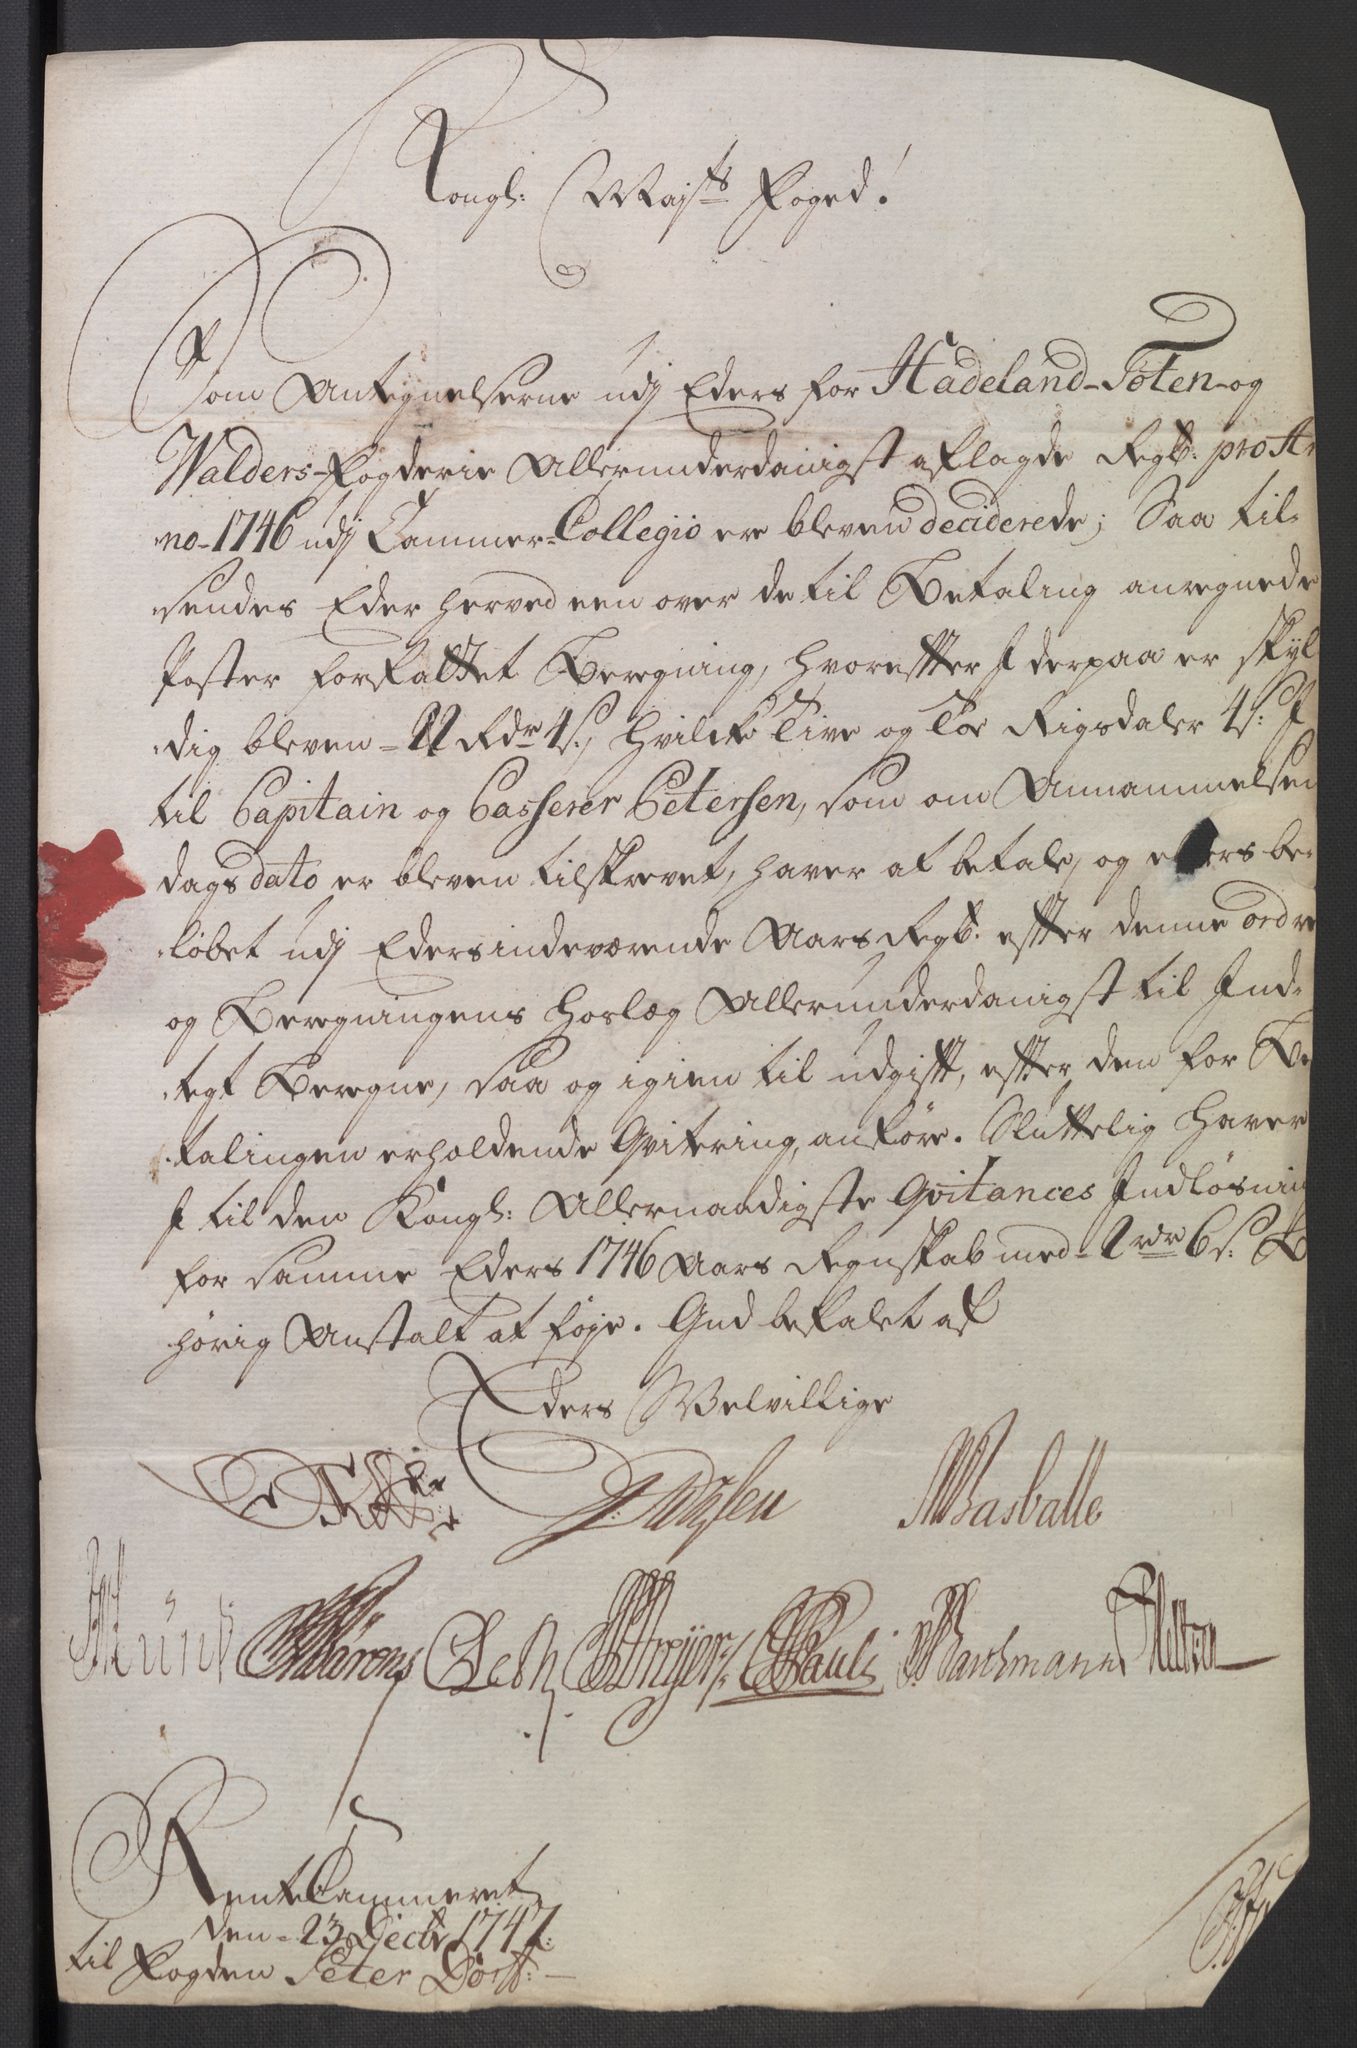 Kongl: Mayts Foged!
Som Antegnelserne udj Eders for Hadeland-Toten-og
Walders-Fogderie Allerunderdanigst aflagde Regb. pro An
no-1746 udj Cammer-Collegio ere bleven deciderede; Saa til-
sendes Eder herved een over de til Betaling anregnede
Poster forfattet Beregning, hvoreffter I derpaa er skyl
dig bleven - 22 Rdr 4 s., hvilcke Tive og Toe Rigsdaler 4 s: I
til Capitain og Casserer Petersen, som om Annammelsen
dags dato er bleven tilskrevet, haver at betale, og ellers be-
löbet udj Eders indeværende Aars Regb. effter denne ordre
og Beregningens hoslæg Allerunderdanigst til Ind-
tegt Beregne, saa og igien til udgifft, effter den for Be
talingen erholdende Qvitering, anföre. Sluttelig haver
I til den Kongl: Allernaadigste Qvitances Indlösning
for samme Eders 1746 Aars Regnskab med - 2 rdr 6 s: Be
hörig Anstalt at föye. Gud befalet af
Eders Velvillige
Rasballe
Münk Leth Pauli
RenteCammeret
den - 23 Decbr 1747.
til Fogden Peter Dorff: -